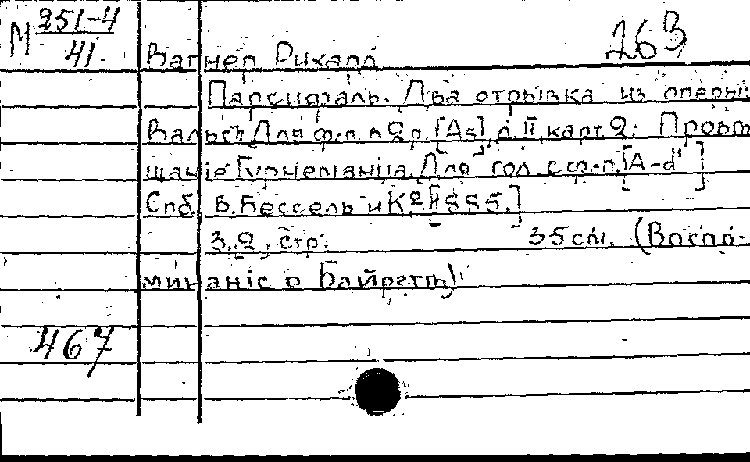 М 251-4
41.
263
Вагнер Рихард
Парсифаль. Два отрывка из оперы:
Вальсъ Для ф.п. в 2 р. [As] д. II карт. 2: Про«
щаніе Гурнеманца Для гол. с ф-п. [A-d"]
Спб. В. Бессель и К° [1885.]
3, 2, стр. 35 см. (Воспо-
минаніе о Байретѣ)
467